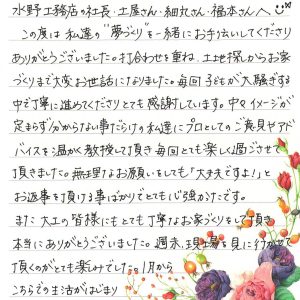 水野工務店の社長・土屋さん・細丸さん・福本さんへ
この度は私達の"夢づくり"を一緒にお手伝いしてくださり
ありがとうございました。打合わせを重ね、土地探しからお家
づくりまで大変お世話になりました。毎回子どもが大騒ぎする
中で丁寧に進めてくださりとても感謝しています。中々イメージが
定まらず分からない事だらけの私達にプロとしてのご意見やアド
バイスを温かく教授して頂き毎回とても楽しく過ごさせて
頂きました。無理なお願いをしても「大丈夫ですよ!」と
お返事を頂ける事ばかりでとても心強かったです。
また大工の皆様にもとても丁寧なお家づくりをして頂き
本当にありがとうございました。週末、現場を見に行かせて
頂くのがとても楽しみでした。1月から
こちらでの生活がはじまり